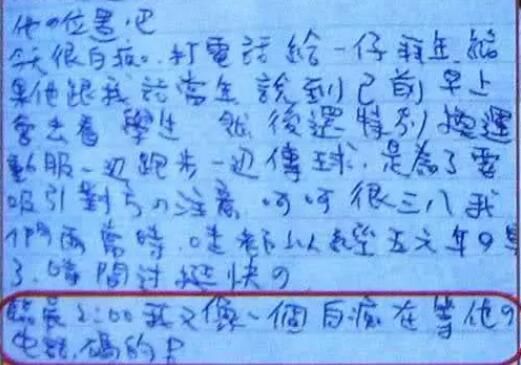 他の位置吧
今天很白痴。打電話給一仔 結
果他跟我 當年說到已前早上
會去看學生 然後還特別換運
動服一边跑步一边傳球.是為了要
吸引對方の注意 呵呵很三八我
們兩當時.哇都以經五六年の事
了.時間过挺快の
臨晨2:00我又像一個白痴在等他の
电話.媽的